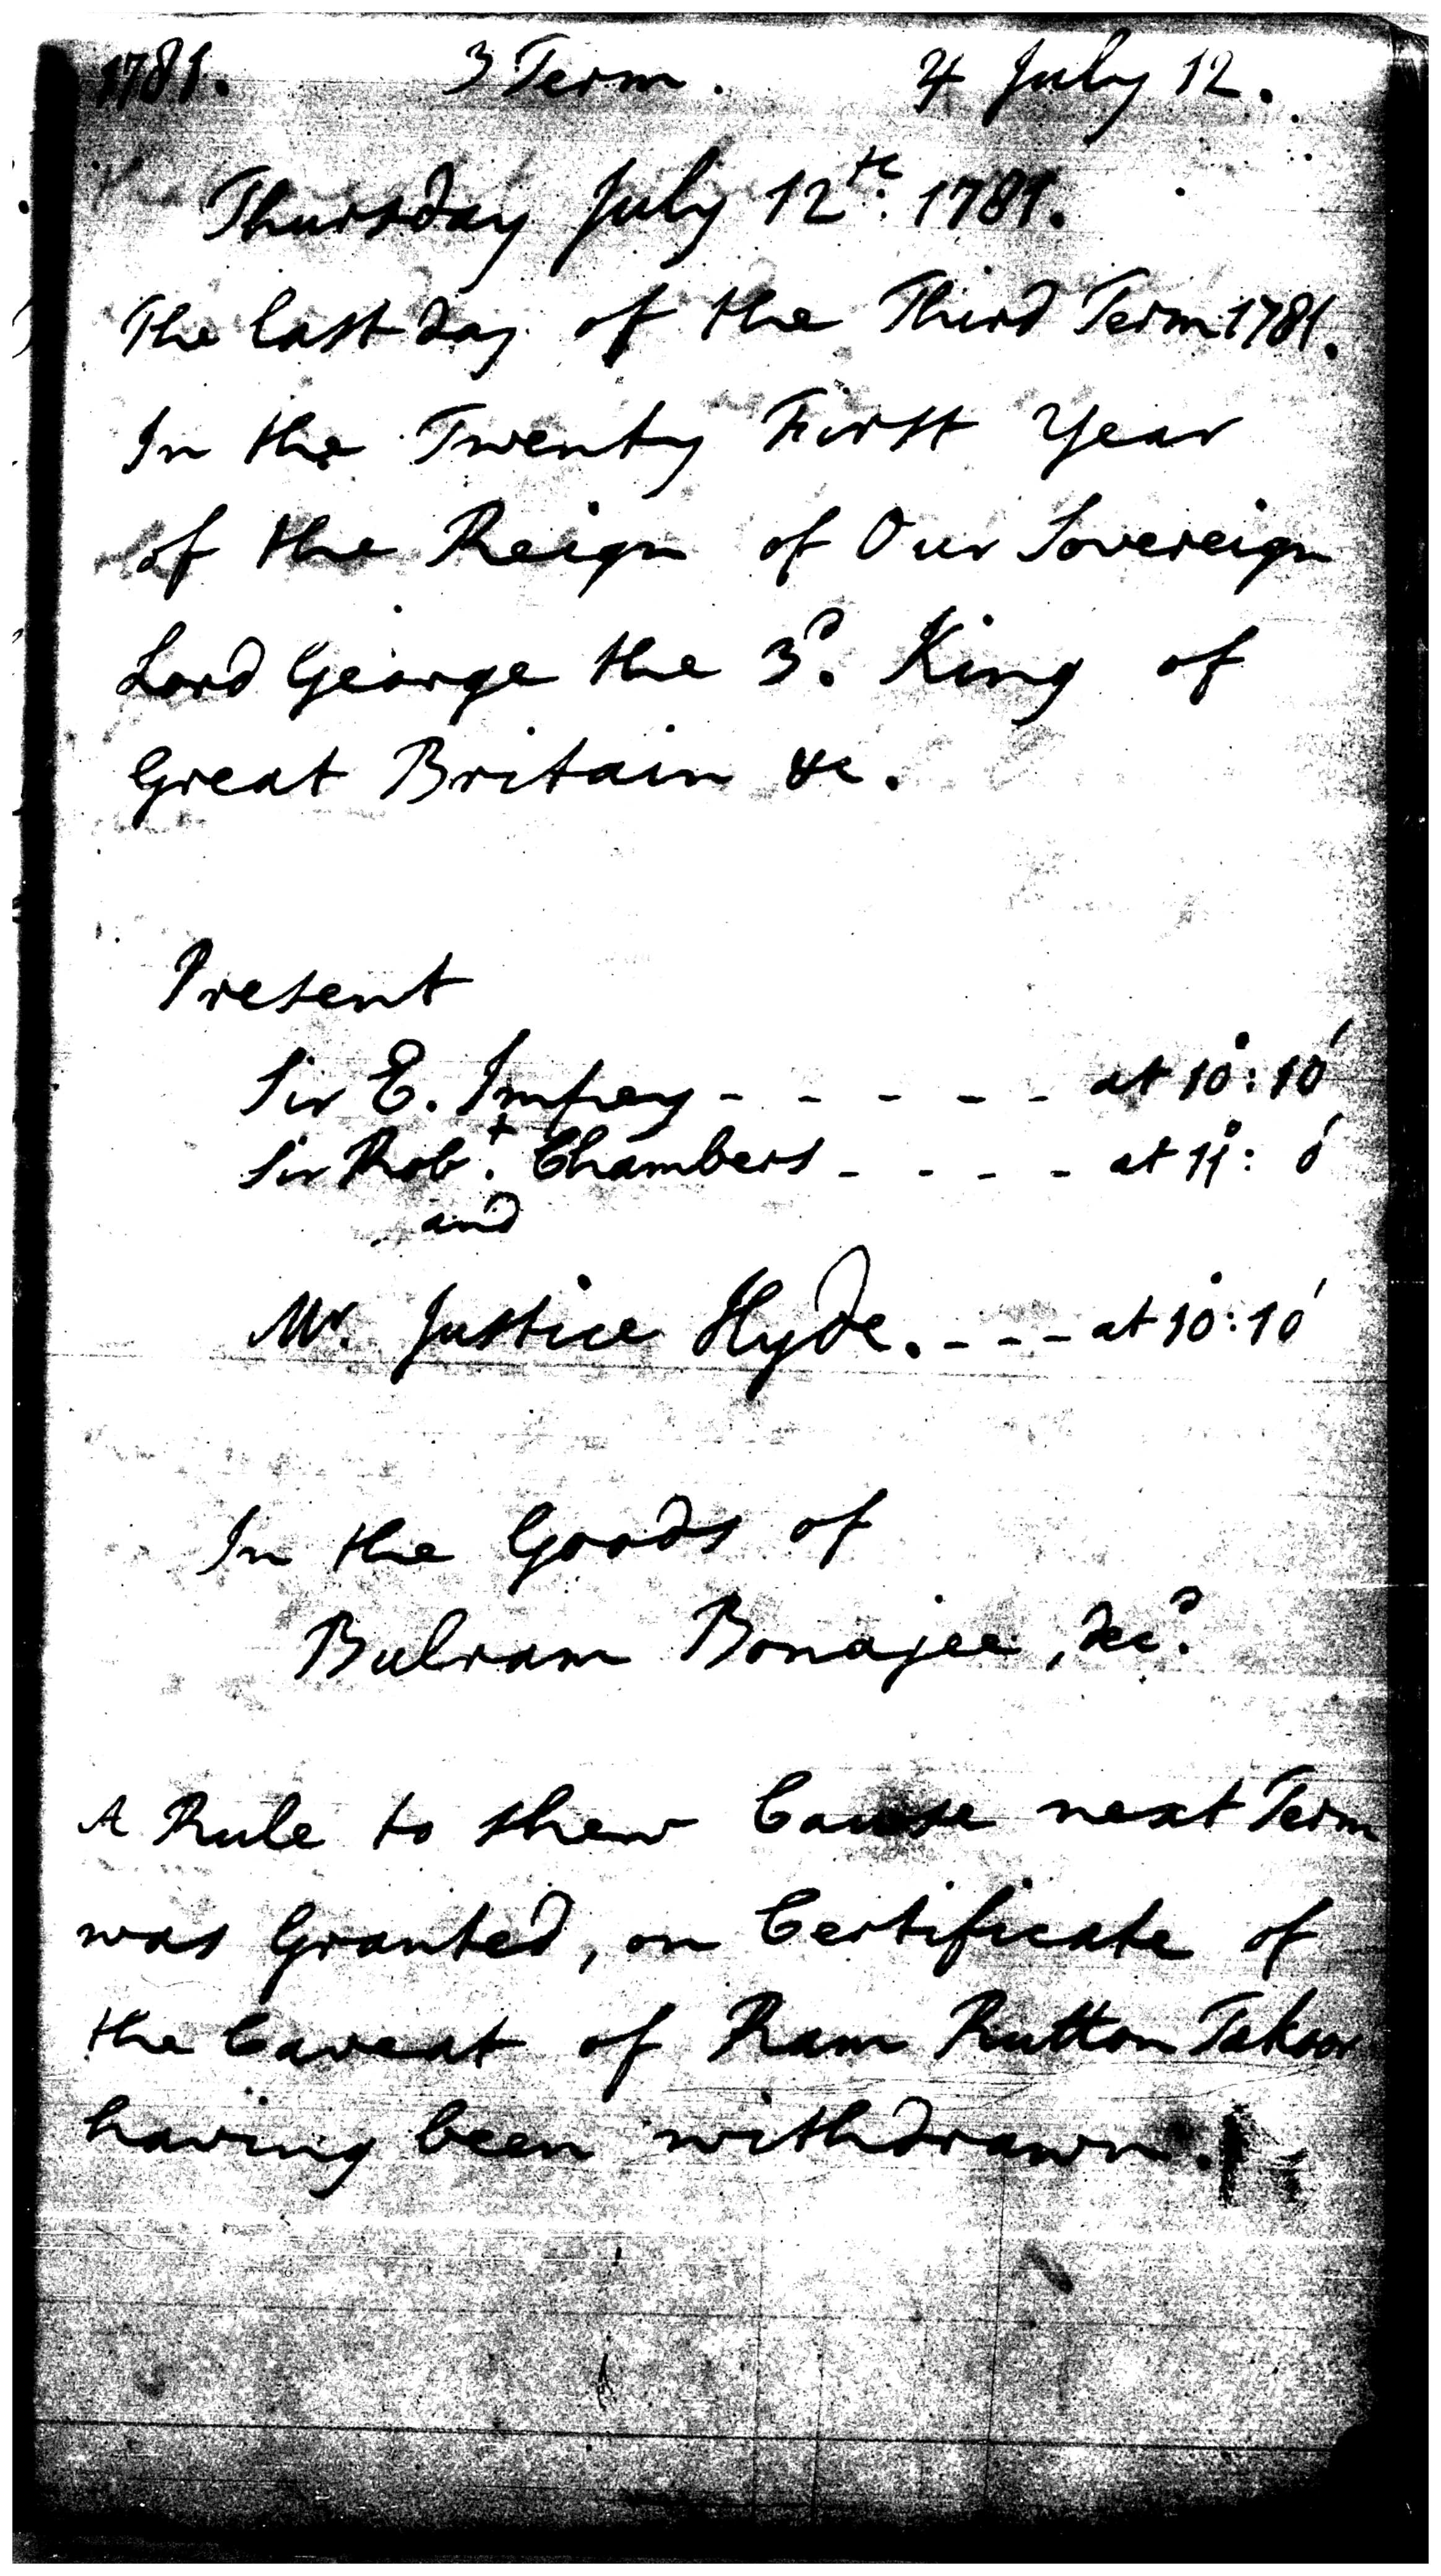 1781. 3 Term. ♃ July 12.
Thursday July 12th. 1781.
The last day of the Third Term 1781.
In the Twenty First Year
of the Reign of Our Sovereign
Lord George the 3d. King of
Great Britain &c.
Present
Sir E. Impey - - - - - at 10°: 10'
Sir Robt. Chambers - - - - at 11°: 0'
and
Mr. Justice Hyde. - - - at 10°: 10'
In the Goods of
Bulram Bonajee, decd.
A Rule to shew Cause next Term
was Granted, on Certificate of
the Caveat of Ram Rutton Takoor
having been withdrawn.